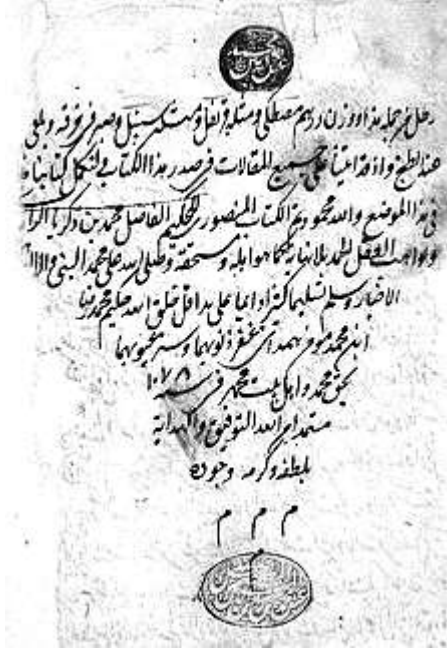 رطل من جملة هذا ووزن درهم مصطكى ومثله قرنفل ومثله سنبل وصر في خرقة ويلقى
عند الطبخ واذ قد اتينا على جميع المقالات في صدر هذا الكتاب فلنكمل كتابنا
في هذا الموضع والله محمود تم الكتاب المنصوري للحكيم الفاضل محمد بن زكريا الرازي
ولواهب العقل الحمد بلا نهاية كما هو اهله ومستحقه وصلى الله على محمد النبي واله
الاخيار وسلم تسليما كثيرا دايما على يد اقل خلق الله حكيم محمد رضا
ابن محمد مومن همداني غفر ذنوبهما وستر عيوبهما
بحق محمد واهل بيت محمد في سنة ١٠٧٨
مستمدا من الله التوفيق والهداية
بلطفه وكرمه وجوده
م م م